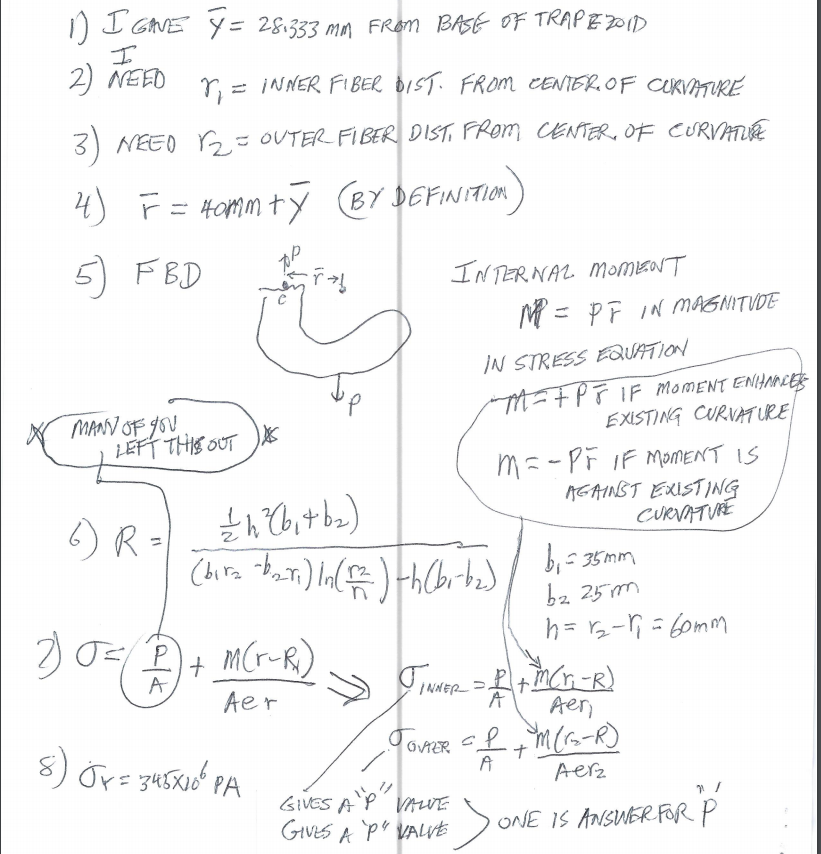 1) I GAVE ȳ = 28.333 mm FROM BASE OF TRAPEZOID
I
2) NEED r₁ = INNER FIBER DIST. FROM CENTER. OF CURVATURE
3) NEED r₂ = OUTER FIBER DIST. FROM CENTER. OF CURVATURE
4) r̄ = 40mm + ȳ (BY DEFINITION)
5) FBD
P
r̄
c
P
INTERNAL MOMENT
M = P r̄ IN MAGNITUDE
IN STRESS EQUATION
M = + P r̄ IF MOMENT ENHANCES
EXISTING CURVATURE
m = - P r̄ IF MOMENT IS
AGAINST EXISTING
CURVATURE
MANY OF YOU
LEFT THIS OUT
6) R = ½ h²(b₁+b₂) / (b₁r₂ - b₂r₁) ln(r₂/r₁) - h(b₁-b₂)
b₁ = 35mm
b₂ 25m
h = r₂ - r₁ = 60mm
7) σ = P/A + M(r-R)/Aer ⇒ σ INNER = P/A + M(r₁-R)/Aer₁
σ OUTER = P/A + M(r₂-R)/Aer₂
8) σY = 345X10⁶ PA
GIVES A "P" VALUE
GIVES A "P" VALUE
ONE IS ANSWER FOR "P"